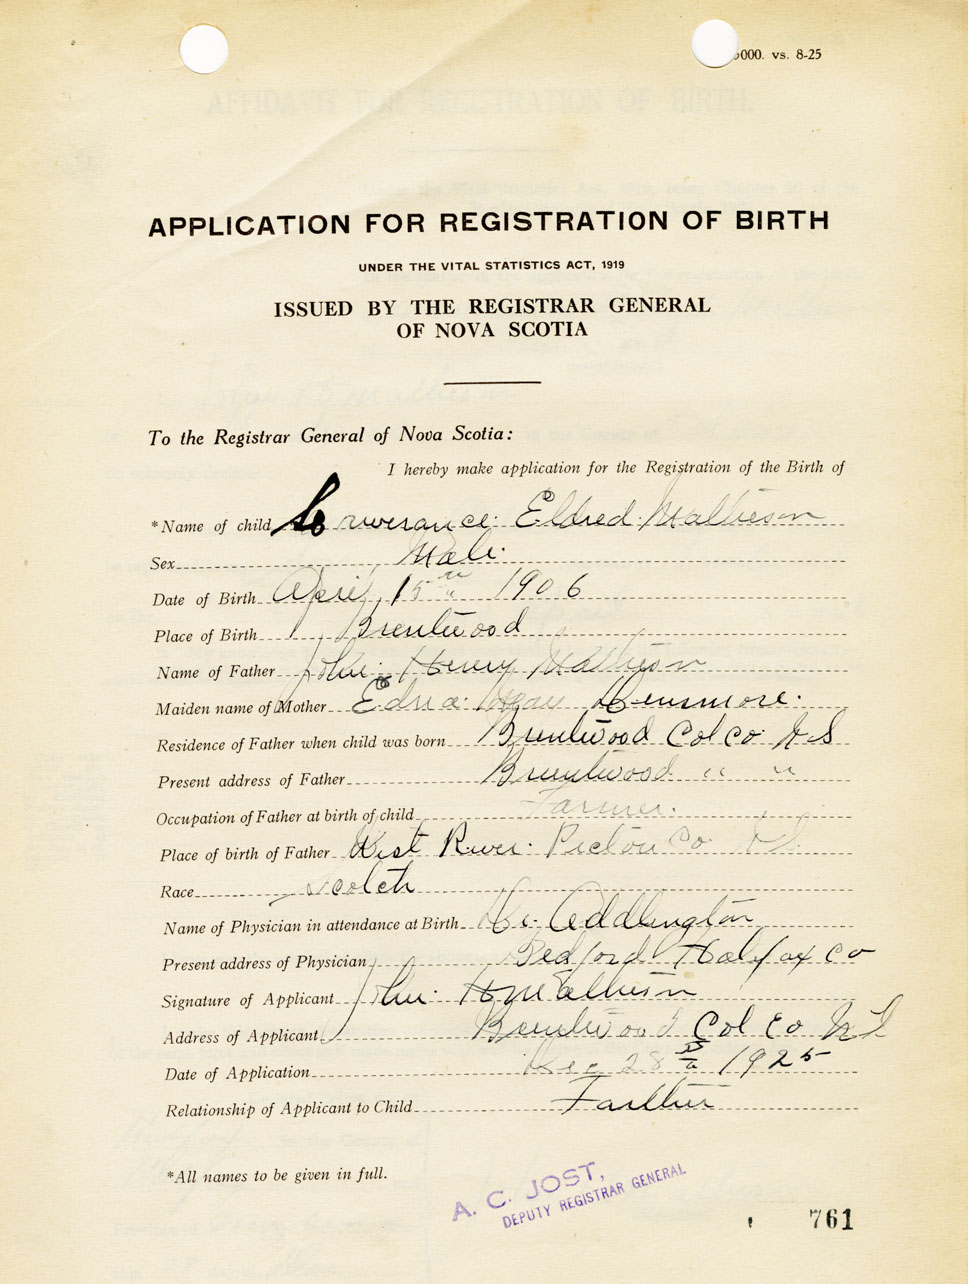 5000. vs. 8-25
APPLICATION FOR REGISTRATION OF BIRTH
UNDER THE VITAL STATISTICS ACT, 1919
ISSUED BY THE REGISTRAR GENERAL
OF NOVA SCOTIA
To the Registrar General of Nova Scotia:
I hereby make application for the Registration of the Birth of
*Name of child Eldred Matheson
Sex Male.
Date of Birth April 15th 1906
Place of Birth Brentwood
Name of Father John Henry Matheson
Maiden name of Mother Edna Densmore.
Residence of Father when child was born Brentwood Col Co N S
Present address of Father Brentwood " "
Occupation of Father at birth of child Farmer.
Place of birth of Father West River. Pictou Co N S.
Race Scotch
Name of Physician in attendance at Birth Dr. Addlington
Present address of Physician Bedford Halifax Co
Signature of Applicant John H Matheson
Address of Applicant Brentwood Col Co N S
Date of Application Dec 28th 1925
Relationship of Applicant to Child Farther
*All names to be given in full.
A. C. JOST,
DEPUTY REGISTRAR GENERAL
761